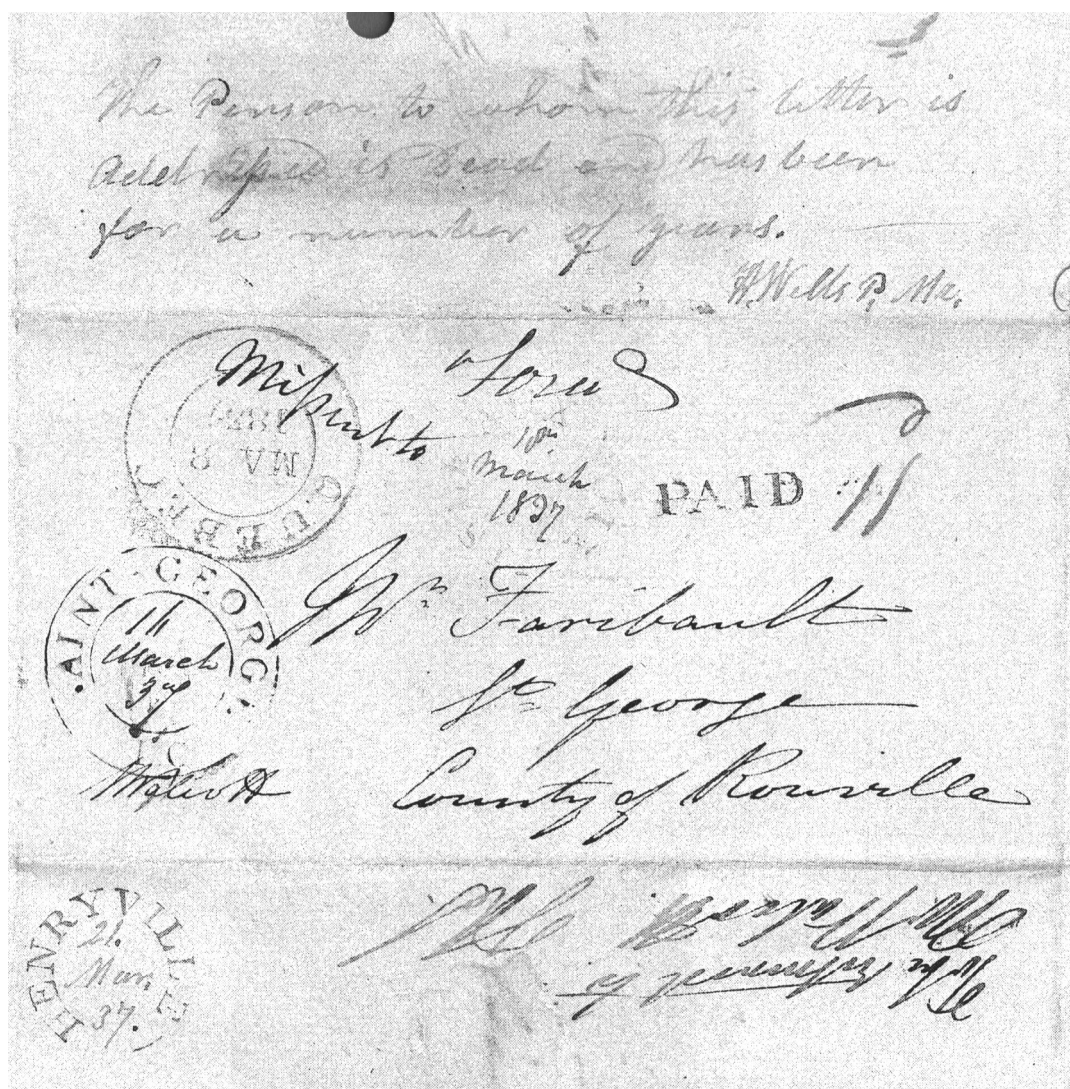 The Person to whom this letter is
Addressed is Dead and has been
for a number of years.
W. Wells P. Mr.
Missent to
10th
March
1837
PAID 11
QUEBEC
MAR 8
1837
SAINT GEORGE
11
March
37
Mr Faribault
St George
County of Rouville
HENRYVILLE
21.
Mar
37.